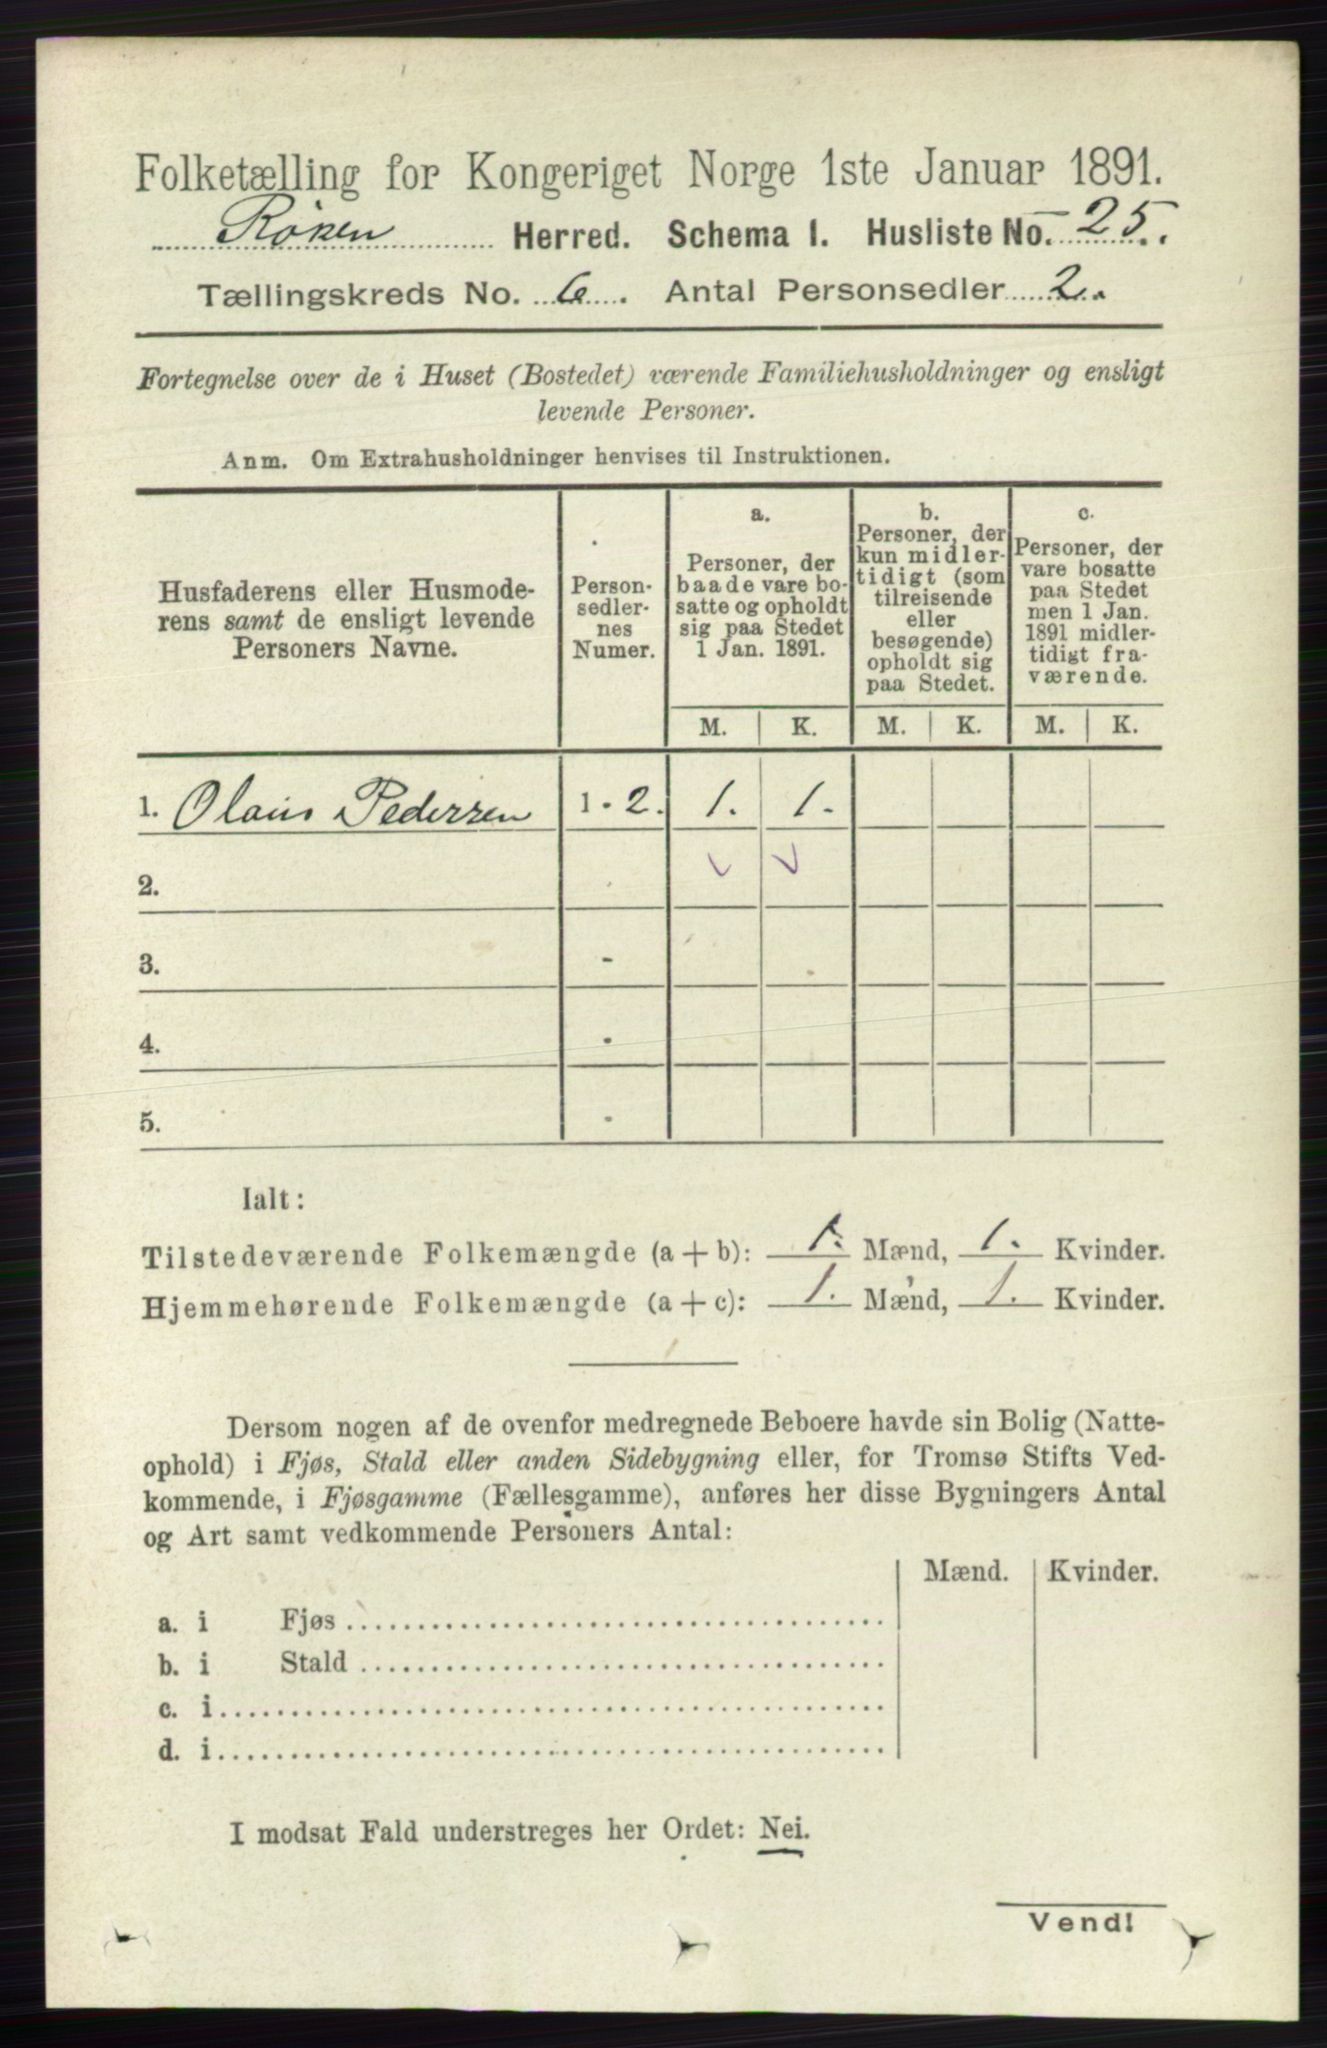 Folketælling for Kongeriget Norge 1ste Januar 1891.
Röken Herred. Schema I. Husliste No. 25.
Tællingskreds No. 6. Antal Personsedler 2.
Fortegnelse over de i Huset (Bostedet) værende Familiehusholdninger og ensligt
levende Personer.
Anm. Om Extrahusholdninger henvises til Instruktionen.
Husfaderens eller Husmode-
rens samt de ensligt levende
Personers Navne.
Person-
sedler-
nes
Numer.
a.
Personer, der
baade vare bo-
satte og opholdt
sig paa Stedet
1 Jan. 1891.
b.
Personer, der
kun midler-
tidigt (som
tilreisende
eller
besøgende)
opholdt sig
paa Stedet.
c.
Personer, der
vare bosatte
paa Stedet
men 1 Jan.
1891 midler-
tidigt fra-
værende.
M. K. M. K. M. K.
1. Olaus Pedersen 1 - 2. 1. 1.
2.
3. -
4. -
5. -
Ialt:
Tilstedeværende Folkemængde (a + b): 1. Mænd, 1. Kvinder.
Hjemmehørende Folkemængde (a + c): 1. Mænd, 1. Kvinder.
Dersom nogen af de ovenfor medregnede Beboere havde sin Bolig (Natte-
ophold) i Fjøs, Stald eller anden Sidebygning eller, for Tromsø Stifts Ved-
kommende, i Fjøsgamme (Fællesgamme), anføres her disse Bygningers Antal
og Art samt vedkommende Personers Antal:
Mænd. Kvinder.
a. i Fjøs
b. i Stald
c. i
d. i
I modsat Fald understreges her Ordet: Nei.
Vend!